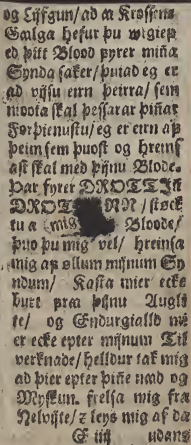 og Lijfgun/ ad a Krossens
Galga hefur þu wtgiefed
þitt Blood fyrer mijna
Synda saker/ þuiad eg er
ad vijsu eirn þeirra/ sem
moota skal þessarar þinar
Forþienustu/ eg er eirn af
þeim sem þuost og hreins
ast skal med þijnu Blode.
Þar fyrer DROTTIN
DROT NN/ støck
tu a mig Bloode/
þuo þu mig vel/ hreinsa
mig af øllum mijnum Sy
ndum/ Kasta mier ecke
burt fra þijnu Auglite/
og Endurgialld mier
ecke epter mijnum Til
verknade/ helldur tak mig
ad þier epter þinne næd og
Myskun. frelsa mig fra
Helvijte/ z leys mig af da
E iij udans